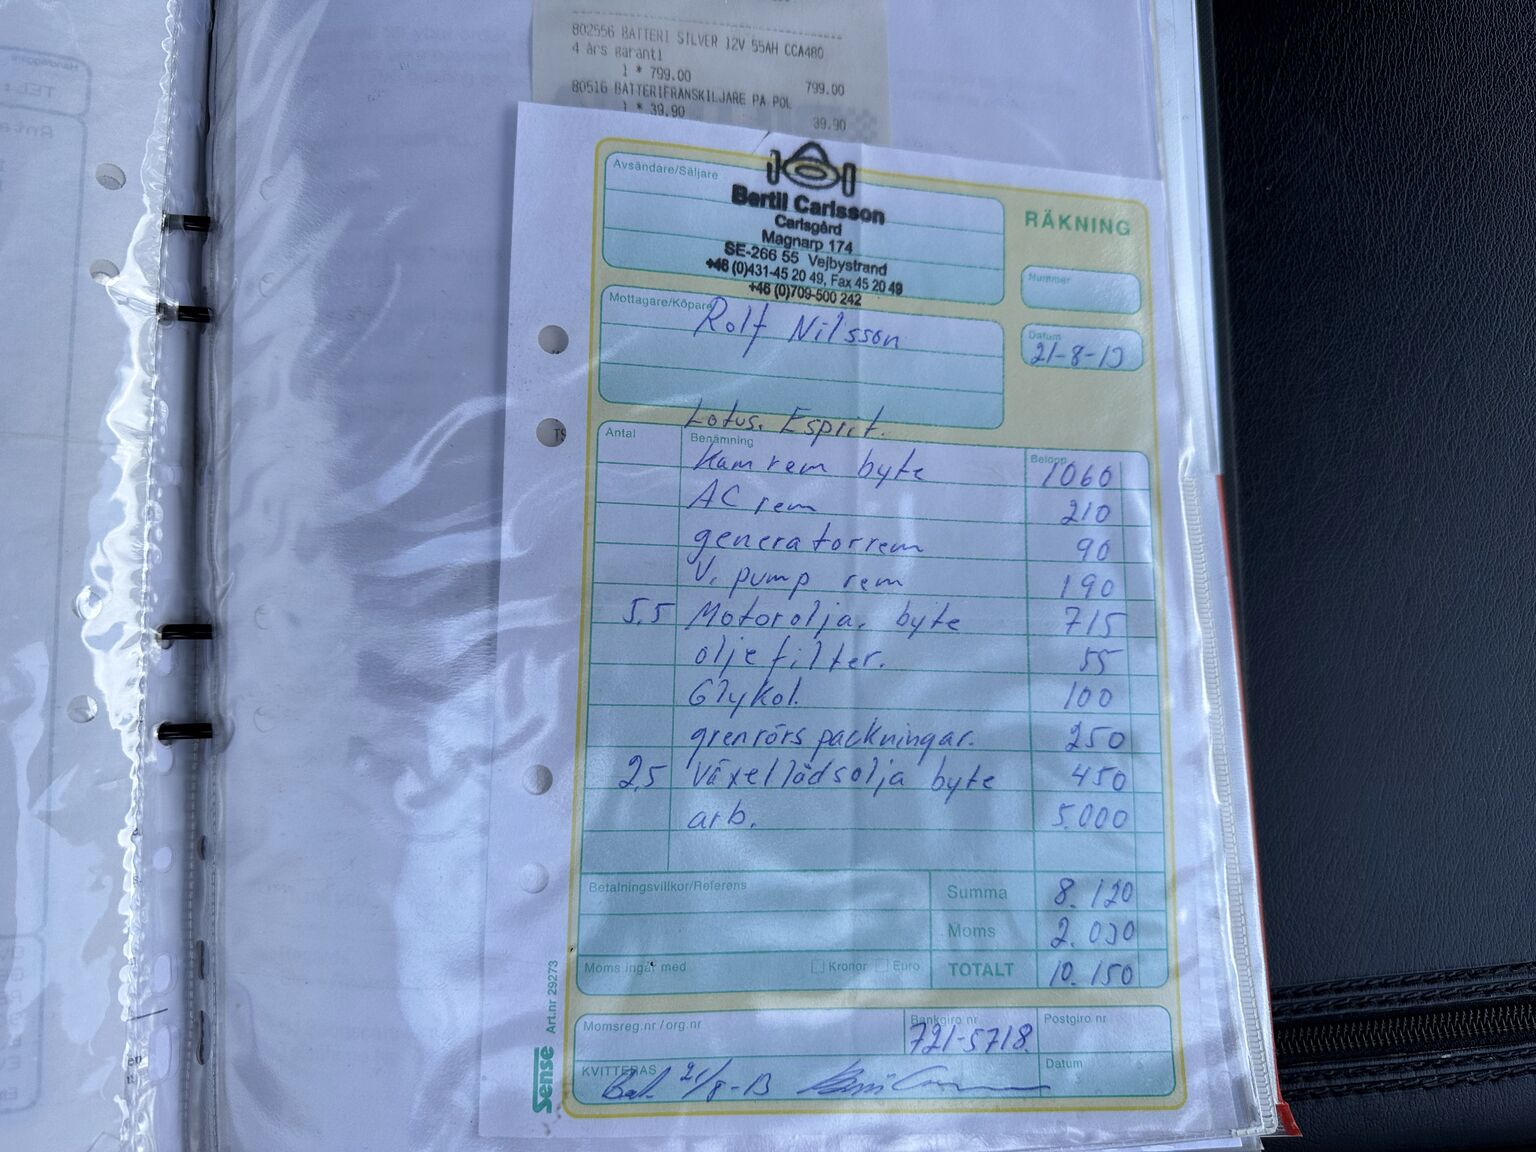 802556 BATTERI SILVER 12V 55AH CCA480
4 års garanti
1 * 799.00 799.00
80516 BATTERIFRANSKILJARE PA POL
1 * 39.90 39.90
Avsändare/Säljare
Bertil Carlsson
Carlsgård
Magnarp 174
SE-266 55 Vejbystrand
+46 (0)431-45 20 49, Fax 45 20 49
+46 (0)709-500 242
RÄKNING
Nummer
Mottagare/Köpare
Rolf Nilsson
Datum
21-8-13
Lotus. Esprit.
Antal Benämning Belopp
Kamrem byte 1060
AC rem 210
generatorrem 90
V. pump rem 190
5,5 Motorolja. byte 715
oljefilter. 55
Glykol. 100
grenrörspackningar. 250
2,5 Växellådsolja byte 450
arb. 5.000
Betalningsvillkor/Referens
Summa 8.120
Moms 2.030
Moms ingår med Kronor Euro TOTALT 10.150
Momsreg.nr/org.nr Bankgiro nr Postgiro nr
721-5718.
KVITTERAS Datum
Bet. 21/8-13
Sense Art.nr 29273
TEL: